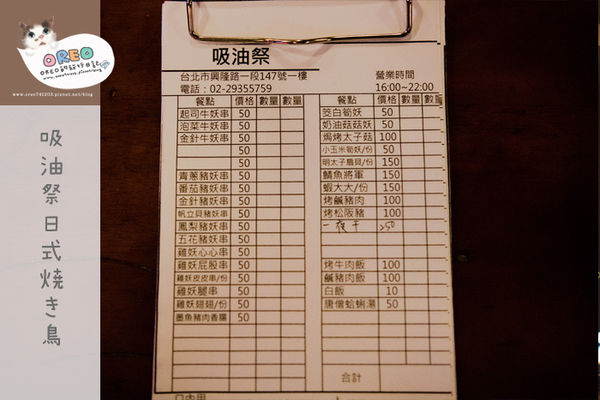 OREO
OREO的旅行日記
吸油祭日式燒き鳥
吸油祭
台北市興隆路一段147號一樓
電話：02-29355759
營業時間
16:00~22:00
餐點 價格 數量 數量
起司牛妖串 50
泡菜牛妖串 50
金針牛妖串 50
50
50
青蔥豬妖串 50
番茄豬妖串 50
金針豬妖串 50
帆立貝豬妖串 50
鳳梨豬妖串 50
五花豬妖串 50
雞妖心心串 50
雞妖屁股串 50
雞妖皮皮串/份 50
雞妖腿串 50
雞妖翅翅/份 50
墨魚豬肉香腸 50
餐點 價格 數量 數量
筊白筍妖 50
奶油菇菇妖 50
焗烤太子菇 100
小玉米筍妖/份 50
明太子扇貝/份 150
鯖魚將軍 150
蝦大大/份 150
烤鹹豬肉 100
烤松阪豬 100
一夜干 250
烤牛肉飯 100
鹹豬肉飯 100
白飯 10
唐僧蛤蜊湯 50
合計